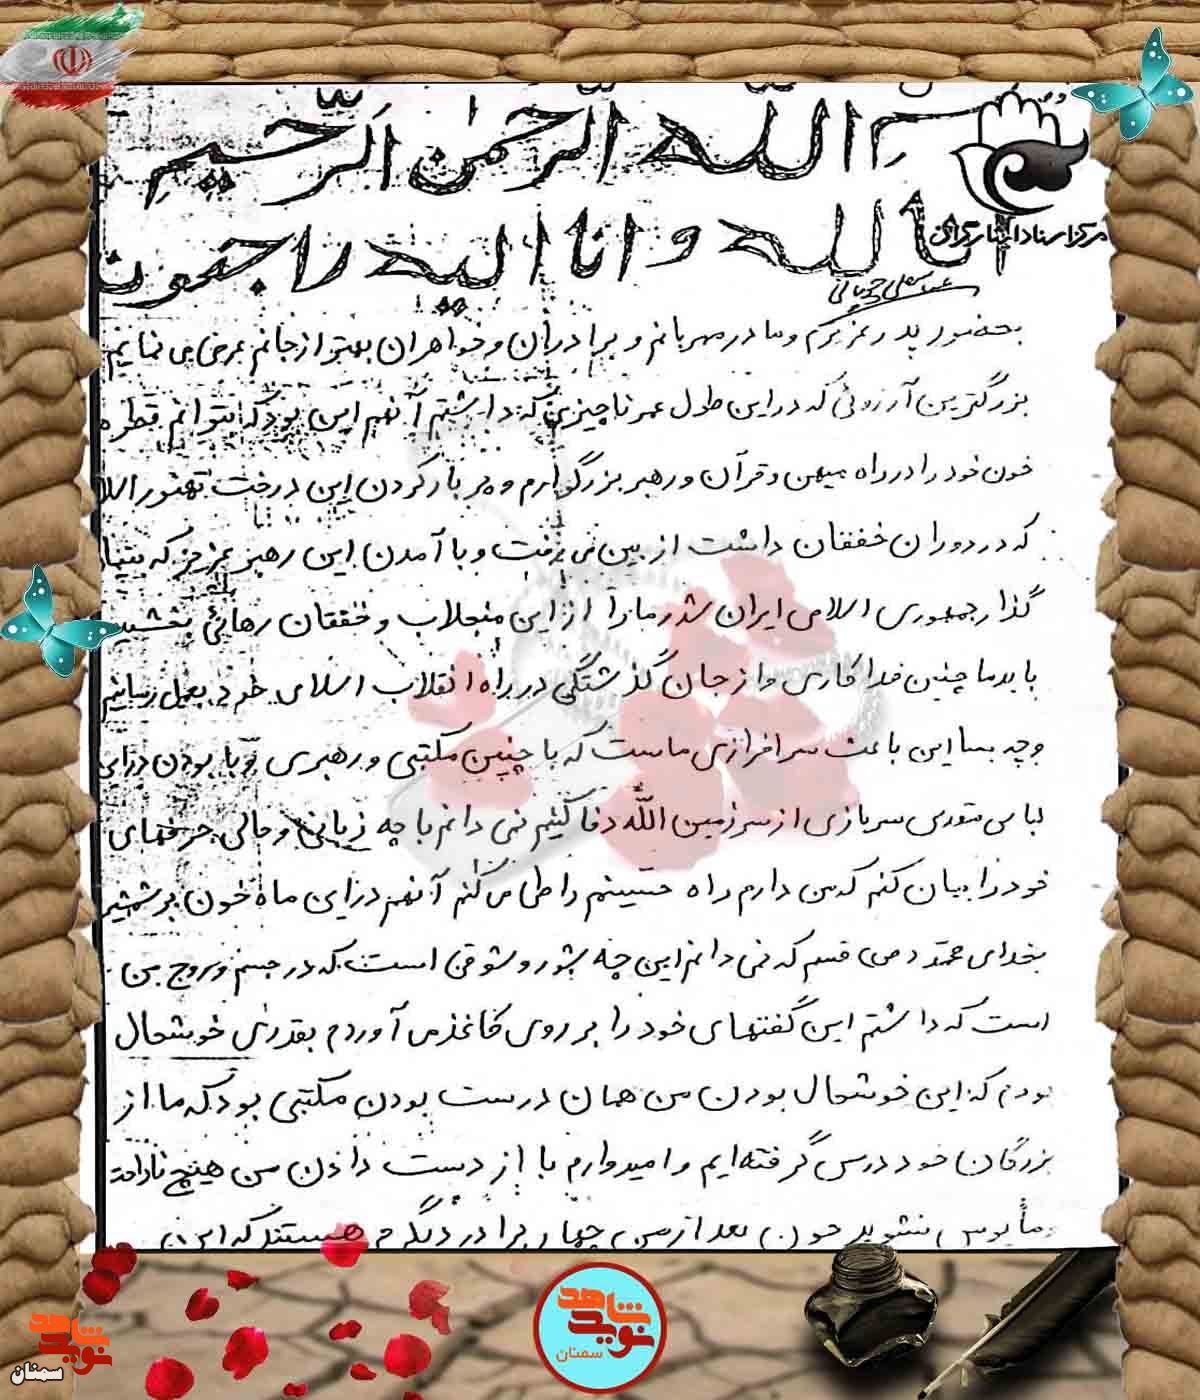 بسم الله الرحمن الرحیم
انا لله و انا الیه راجعون
مرکز اسناد ایثارگران
بحضور پدر عزیزم و مادر مهربانم و برادران و خواهران بهتر از جانم عرض می نمایم
بزرگترین آرزوئی که در این طول عمر ناچیزی که داشتم آنهم این بود که بتوانم قطره
خون خود را در راه میهن و قرآن و رهبر بزرگوارم و پر بار کردن این درخت تهنور اسلا
که در دوران خفقان داشت از بین می رفت و با آمدن این رهبر عزیز که بنیا
گذار جمهوری اسلامی ایران شد ما را از این منجلاب و خفقان رهائی بخشید
باید ما چنین فداکاری و از جان گذشتگی در راه انقلاب اسلامی خود بعمل رسانیم
و چه بسا این باعث سرافرازی ماست که با چنین مکتبی و رهبری و با بودن در این
لباس مقدس سربازی از سرزمین الله دفاع کنیم نمی دانم با چه زبانی و حالی حرفهای
خود را بیان کنم که من دارم راه حسینم را طی می کنم آنهم در این ماه خون بر شمشیر
بخدای محمد (ص) قسم که نمی دانم این چه شور و شوقی است که در جسم و روح من
است که داشتم این گفتهای خود را بر روی کاغذ می آوردم بقدری خوشحال
بودم که این خوشحال بودن من همان درست بودن مکتبی بود که ما از
بزرگان خود درس گرفته ایم و امیدوارم با از دست دادن من هیچ ناراحت
مأیوس نشوید چون بعد از من چهار برادر دیگرم هستند که این
نوید شاهد
سمنان
نوید شاهد
سمنان